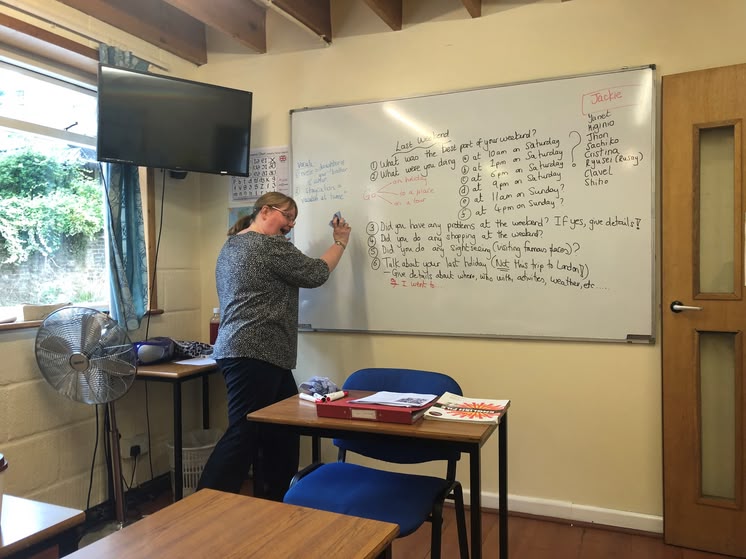 Last Weekend
① What was the best part of your weekend?
② What were you doing
ⓐ at 10am on Saturday
ⓑ at 1pm on Saturday
ⓒ at 6pm on Saturday
ⓓ at 9pm on Saturday
ⓔ at 11am on Sunday?
at 4pm on Sunday?
?
Go
on holiday
to a place
on a tour
③ Did you have any problems at the weekend? If yes, give details!
④ Did you do any shopping at the weekend?
⑤ Did you do any sightseeing (visiting famous places)?
⑥ Talk about your last holiday (Not this trip to London!)
- Give details about where, who with, activities, weather, etc....
I went to...
Jackie
Yanet
Jhon
Sachiko
Cristina
Ryusei (Rusay)
Clavel
Shiho